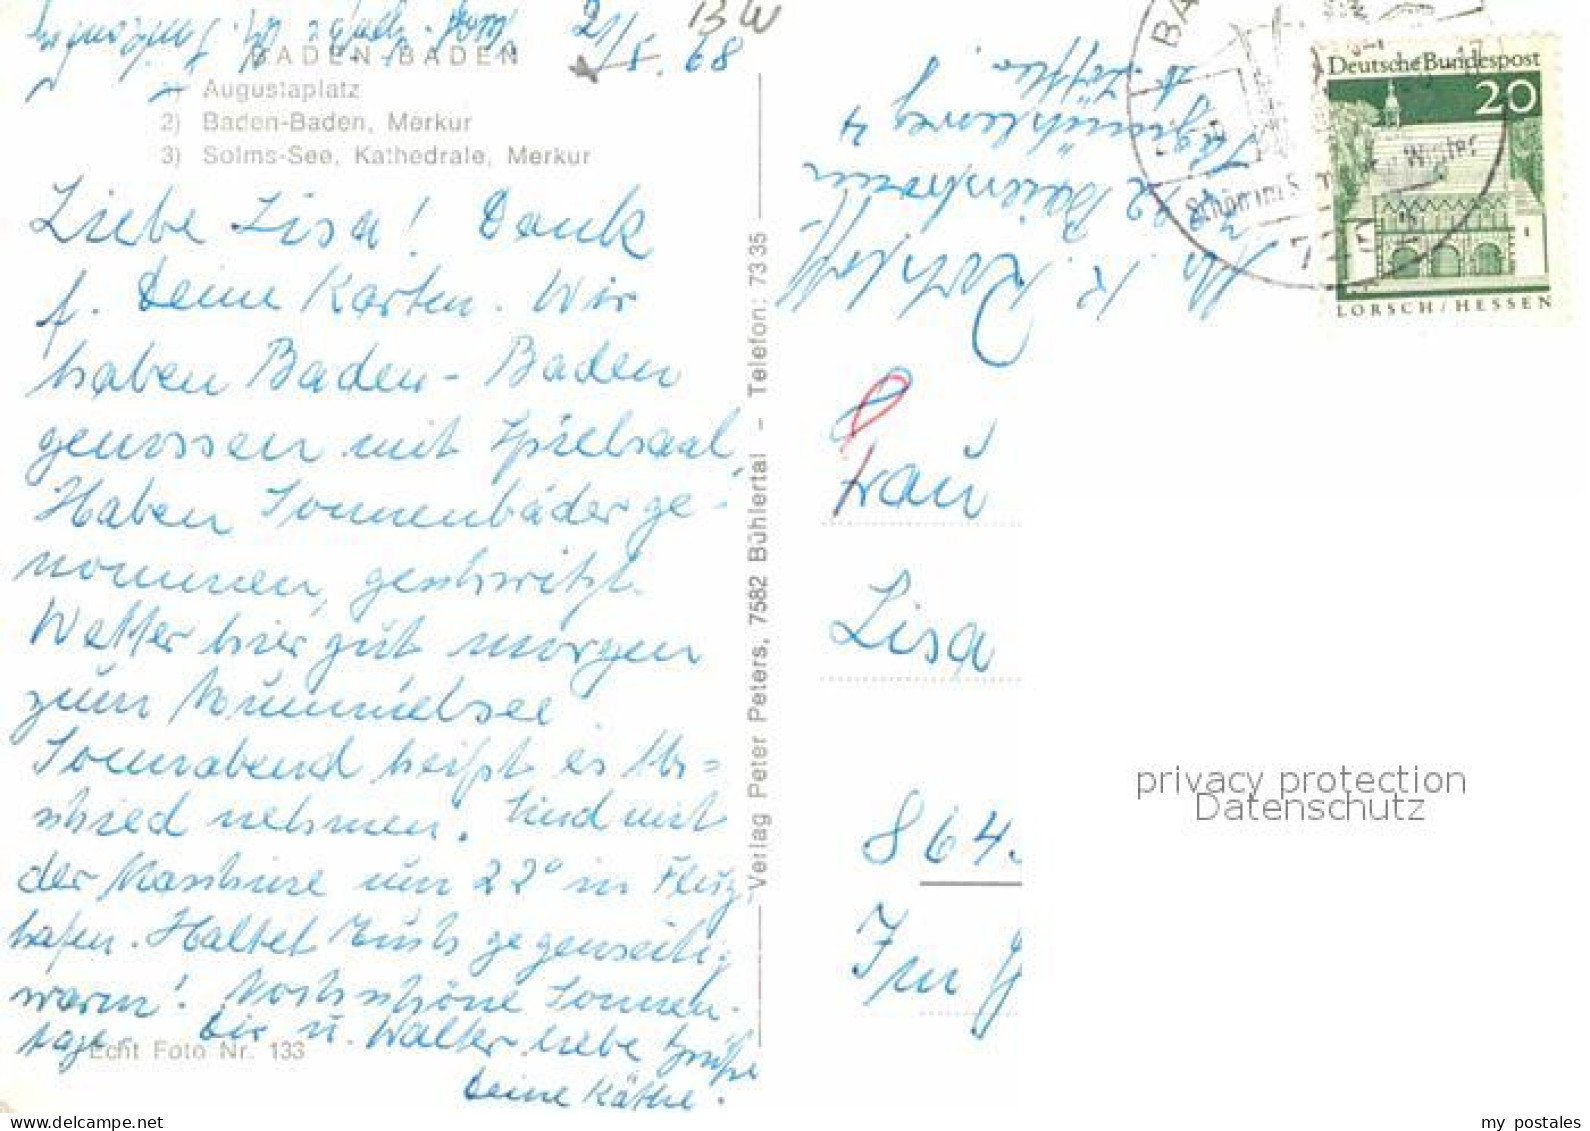 21/8. 68
13 W
BADEN-BADEN
1) Augustaplatz
2) Baden-Baden, Merkur
3) Solms-See, Kathedrale, Merkur
Liebe Lisa! Dank
f. Deine Karten. Wir
haben Baden-Baden
genossen mit Spielsaal,
Haben Sonnenbäder ge-
nommen, geschwitzt
Wetter hier gut morgen
zum Mummelsee
Sonnabend heißt es Abs-
schied nehmen. Sind mit
der Maschine um 22° im Flug-
hafen. Haltet Euch gegenseitig
warm! Noch schöne Sonnen-
tage. Dir u. Walter liebe Grüße
Deine Käthe.
Echt Foto Nr. 133
Verlag Peter Peters, 7582 Bühlertal - Telefon: 73 35
Deutsche Bundespost
20
LORSCH/HESSEN
Schön im Winter
Frau
Lisa
864
Im
privacy protection
Datenschutz
my postales